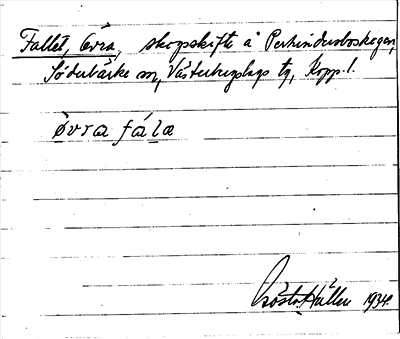 Fallet, Övra, skogskifte å Perhindersboskogen,
Söderbärke sn, Västerbergslags tg, Kopp. l.
øvra fála
Gösta Hallén 1934.